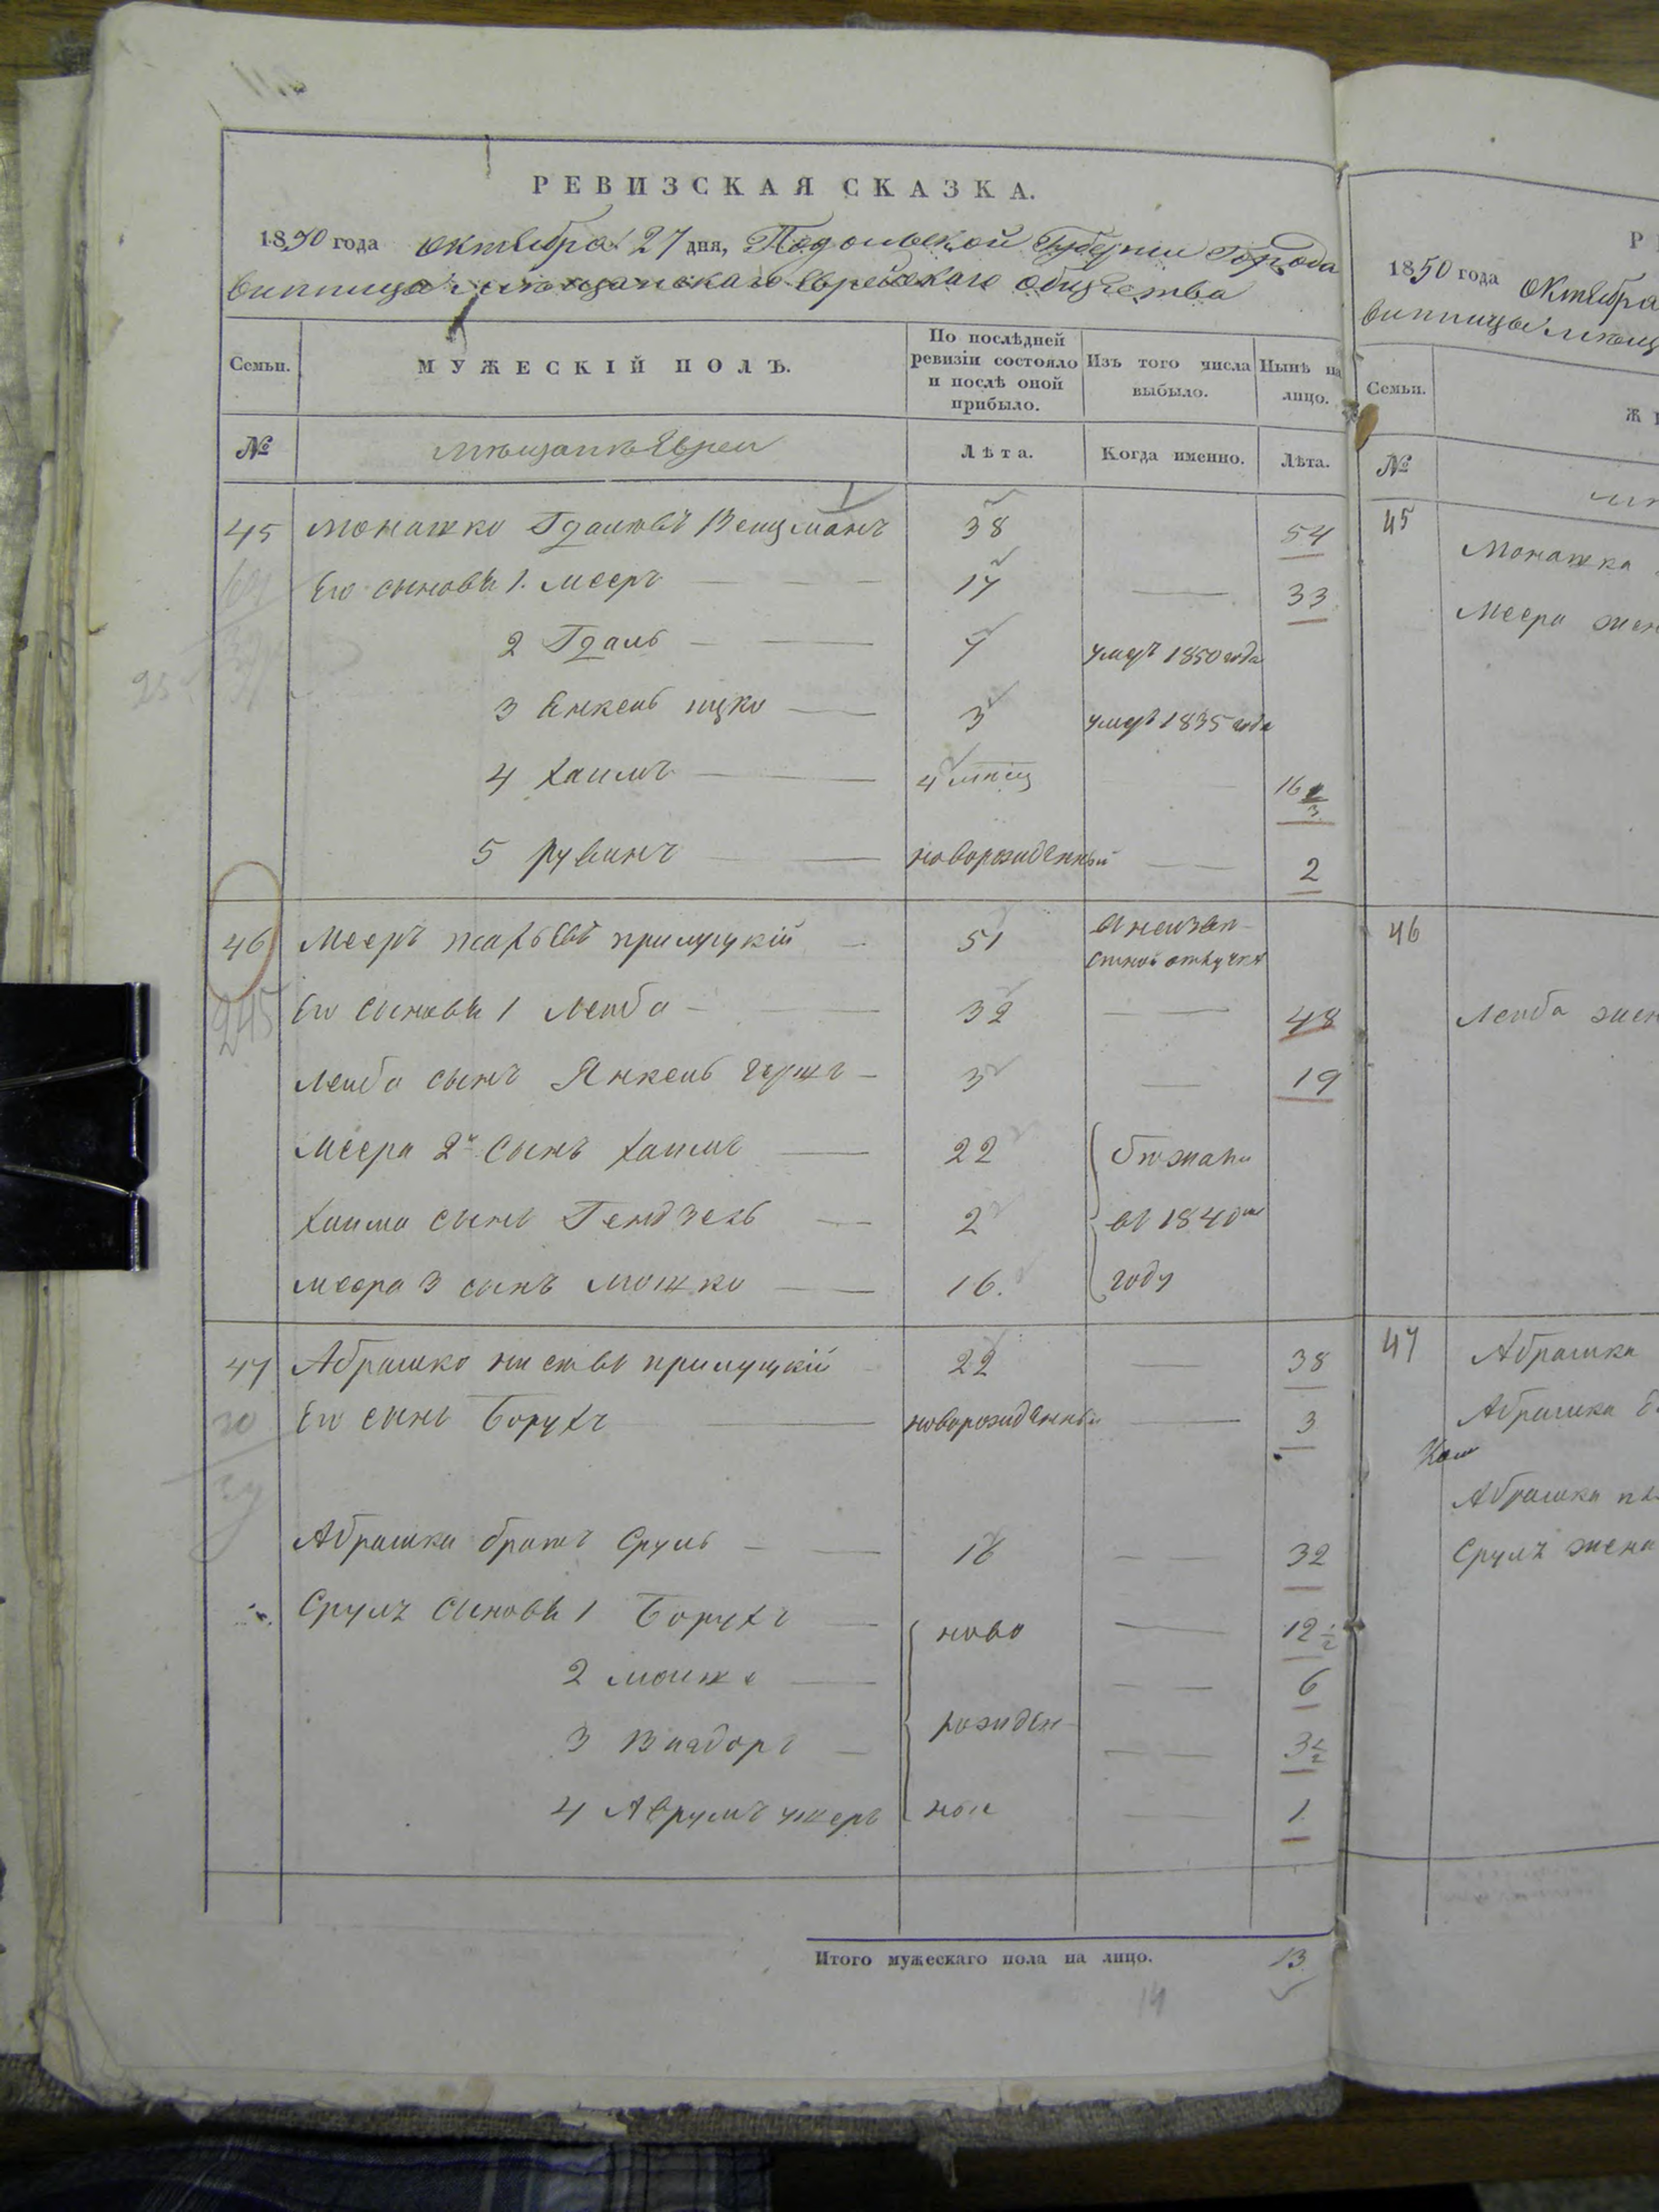 РЕВИЗСКАЯ СКАЗКА.
1850 года октября 27 дня, Подольской Губерніи Города
винницы мѣщанскаго Еврейскаго общества
Семьи. МУЖЕСКІЙ ПОЛЪ. По послѣдней ревизіи состояло и послѣ оной прибыло. Изъ того числа выбыло. Нынѣ на лицо.
№ мѣщанъ Евреи Лѣта. Когда именно. Лѣта.
45 Монашко Гдалювъ Вейцманъ 38 54
Его сыновья 1. Мееръ 17 33
2 Гдаль 7 умеръ 1850 года
3 Янкель ицко 3 умеръ 1835 года
4 Хаимъ 4 мѣсяц 16 1/3
5 рувинъ новорожденный 2
46 Мееръ прилуцкій 51 в неизвѣ-
стной отлучкѣ
Его сыновья 1 Лейба 32 48
Лейба сынъ Янкель 3 19
Меера 2й сынъ Хаимъ 22 бѣжали
Хаима сынъ Гендзель 2 въ 1840м
меера 3 сынъ мошко 16. году
47 Абрашко прилуцкій 22 38
30 Его сынъ Борухъ новорожденный 3
Абрашки братъ Сруль 16 32
Срулъ сыновья 1 Борухъ ново 12 1/2
2 6
3 рожден- 3 1/2
4 Аврумъ ные 1
Итого мужескаго пола на лицо. 13
14
1850 года октября
винницы мѣщ
Семьи.
№
45
Монашка
Меера жен
46
Лейба жен
47 Абрашки
Абрашки
Абрашки
Срулъ жена